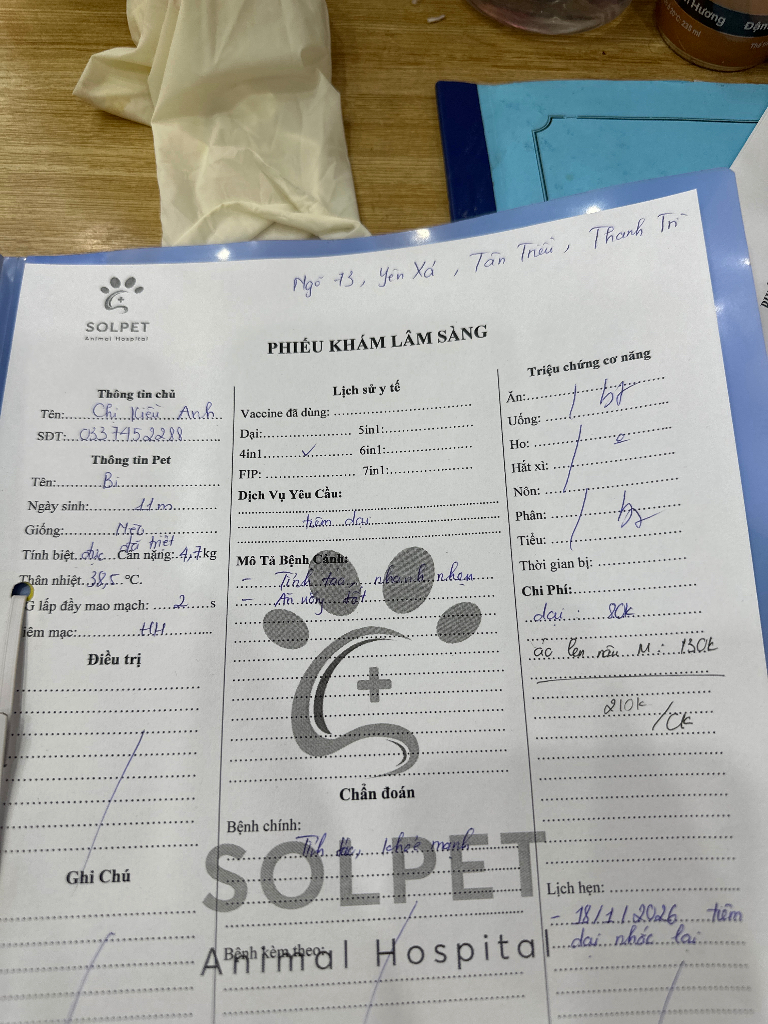 Hương
Đậm
Ngõ 73, Yên Xá, Tân Triều, Thanh Trì
SOLPET
Animal Hospital
PHIẾU KHÁM LÂM SÀNG
Thông tin chủ
Tên: Chị Kiều Anh
SDT: 0337452288
Thông tin Pet
Tên: Bi
Ngày sinh: 11m
Giống: Mèo
Tính biệt: đực đã triệt Cân nặng: 4,7 kg
Thân nhiệt: 38,5 °C.
G lấp đầy mao mạch: 2 s
iêm mạc: HH
Điều trị
Ghi Chú
Lịch sử y tế
Vaccine đã dùng:
Dại: 5in1:
4in1 ✓ 6in1:
FIP: 7in1:
Dịch Vụ Yêu Cầu:
tiêm dại
Mô Tả Bệnh Cảnh:
- Tỉnh táo, nhanh nhẹn
- Ăn uống tốt
Chẩn đoán
Bệnh chính:
Tỉnh táo, khoẻ mạnh
SOLPET
Bệnh kèm theo:
Animal Hospital
Triệu chứng cơ năng
Ăn: bt
Uống:
Ho: o
Hắt xì:
Nôn:
Phân: bt
Tiểu:
Thời gian bị:
Chi Phí:
dại: 80k
áo len nâu M: 130k
210k /CK
Lịch hẹn:
- 18/1/2026 tiêm
dại nhắc lại